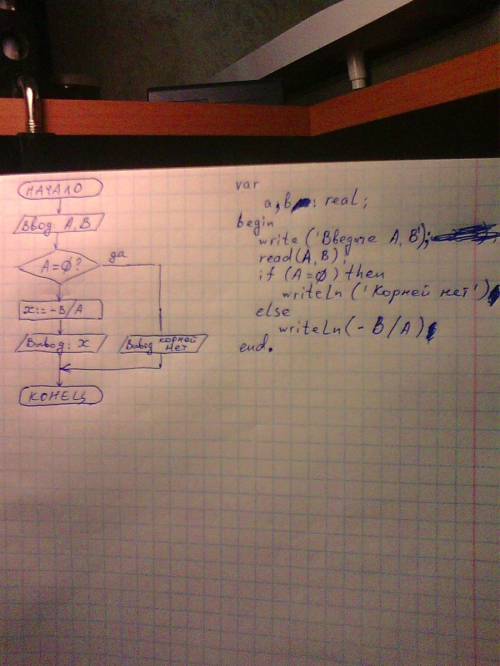 НАЧАЛО
Ввод A, B
A=0?
да
x:=-B/A
Вывод: x
Вывод корней нет
КОНЕЦ
var
a, b : real;
begin
write ('Введите A, B');
read(A, B);
if (A=0) then
writeln ('Корней нет')
else
writeln(-B/A)
end.